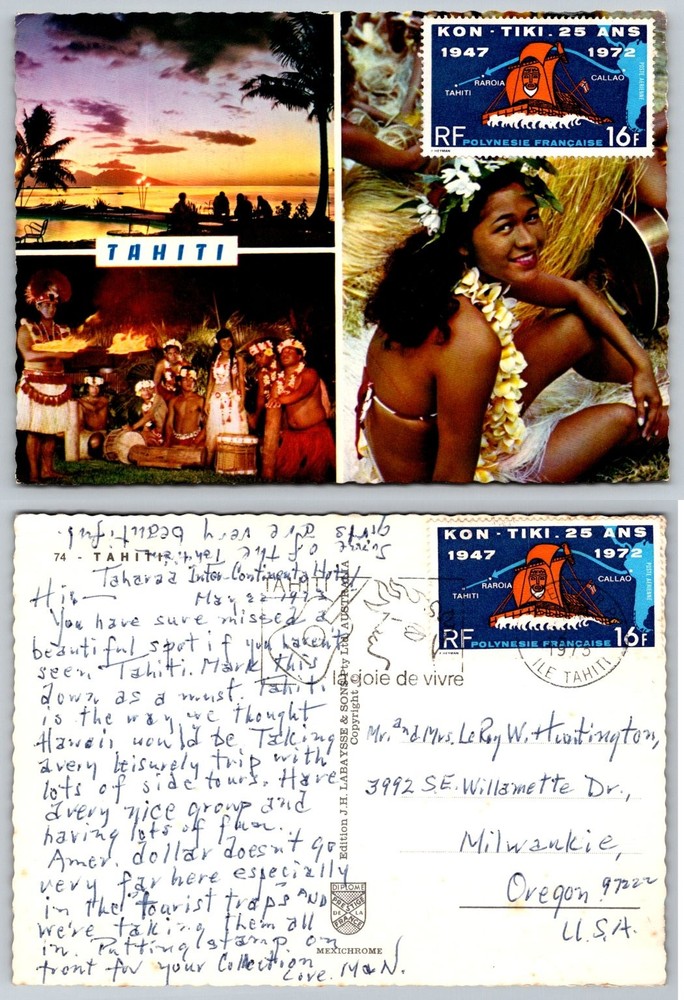 KON-TIKI. 25 ANS
1947 1972
TAHITI RAROIA CALLAO
POSTE AERIENNE
RF POLYNESIE FRANÇAISE 16F
TAHITI
girls are very beautiful.
of the Tahitian
74 - TAHITI
Taharaa Inter-Continental Hotel
May 22 1973
Hi—
You have sure missed a
beautiful spot if you haven't
seen Tahiti. Mark this
down as a must. Tahiti
is the way we thought
Hawaii would be. Taking
a very leisurely trip with
lots of side tours. Have
a very nice group and
having lots of fun.
Amer. dollar doesn't go
very far here especially
in the tourist traps AND
we're taking them all
in. Putting stamp on
front for your Collection
Love. M & N.
Edition J.H. LABAYSSE & SONS Pty Ltd AUSTRALIA
Copyright
DIPLOME
PRESTIGE
DE LA
FRANCE
MEXICHROME
KON-TIKI. 25 ANS
1947 1972
TAHITI RAROIA CALLAO
POSTE AERIENNE
RF POLYNESIE FRANÇAISE 16F
TAHITI
la joie de vivre
1973
ILE TAHITI
Mr. and Mrs. LeRoy W. Huntington,
3992 S.E. Willamette Dr.,
Milwaukie,
Oregon 97222
U.S.A.